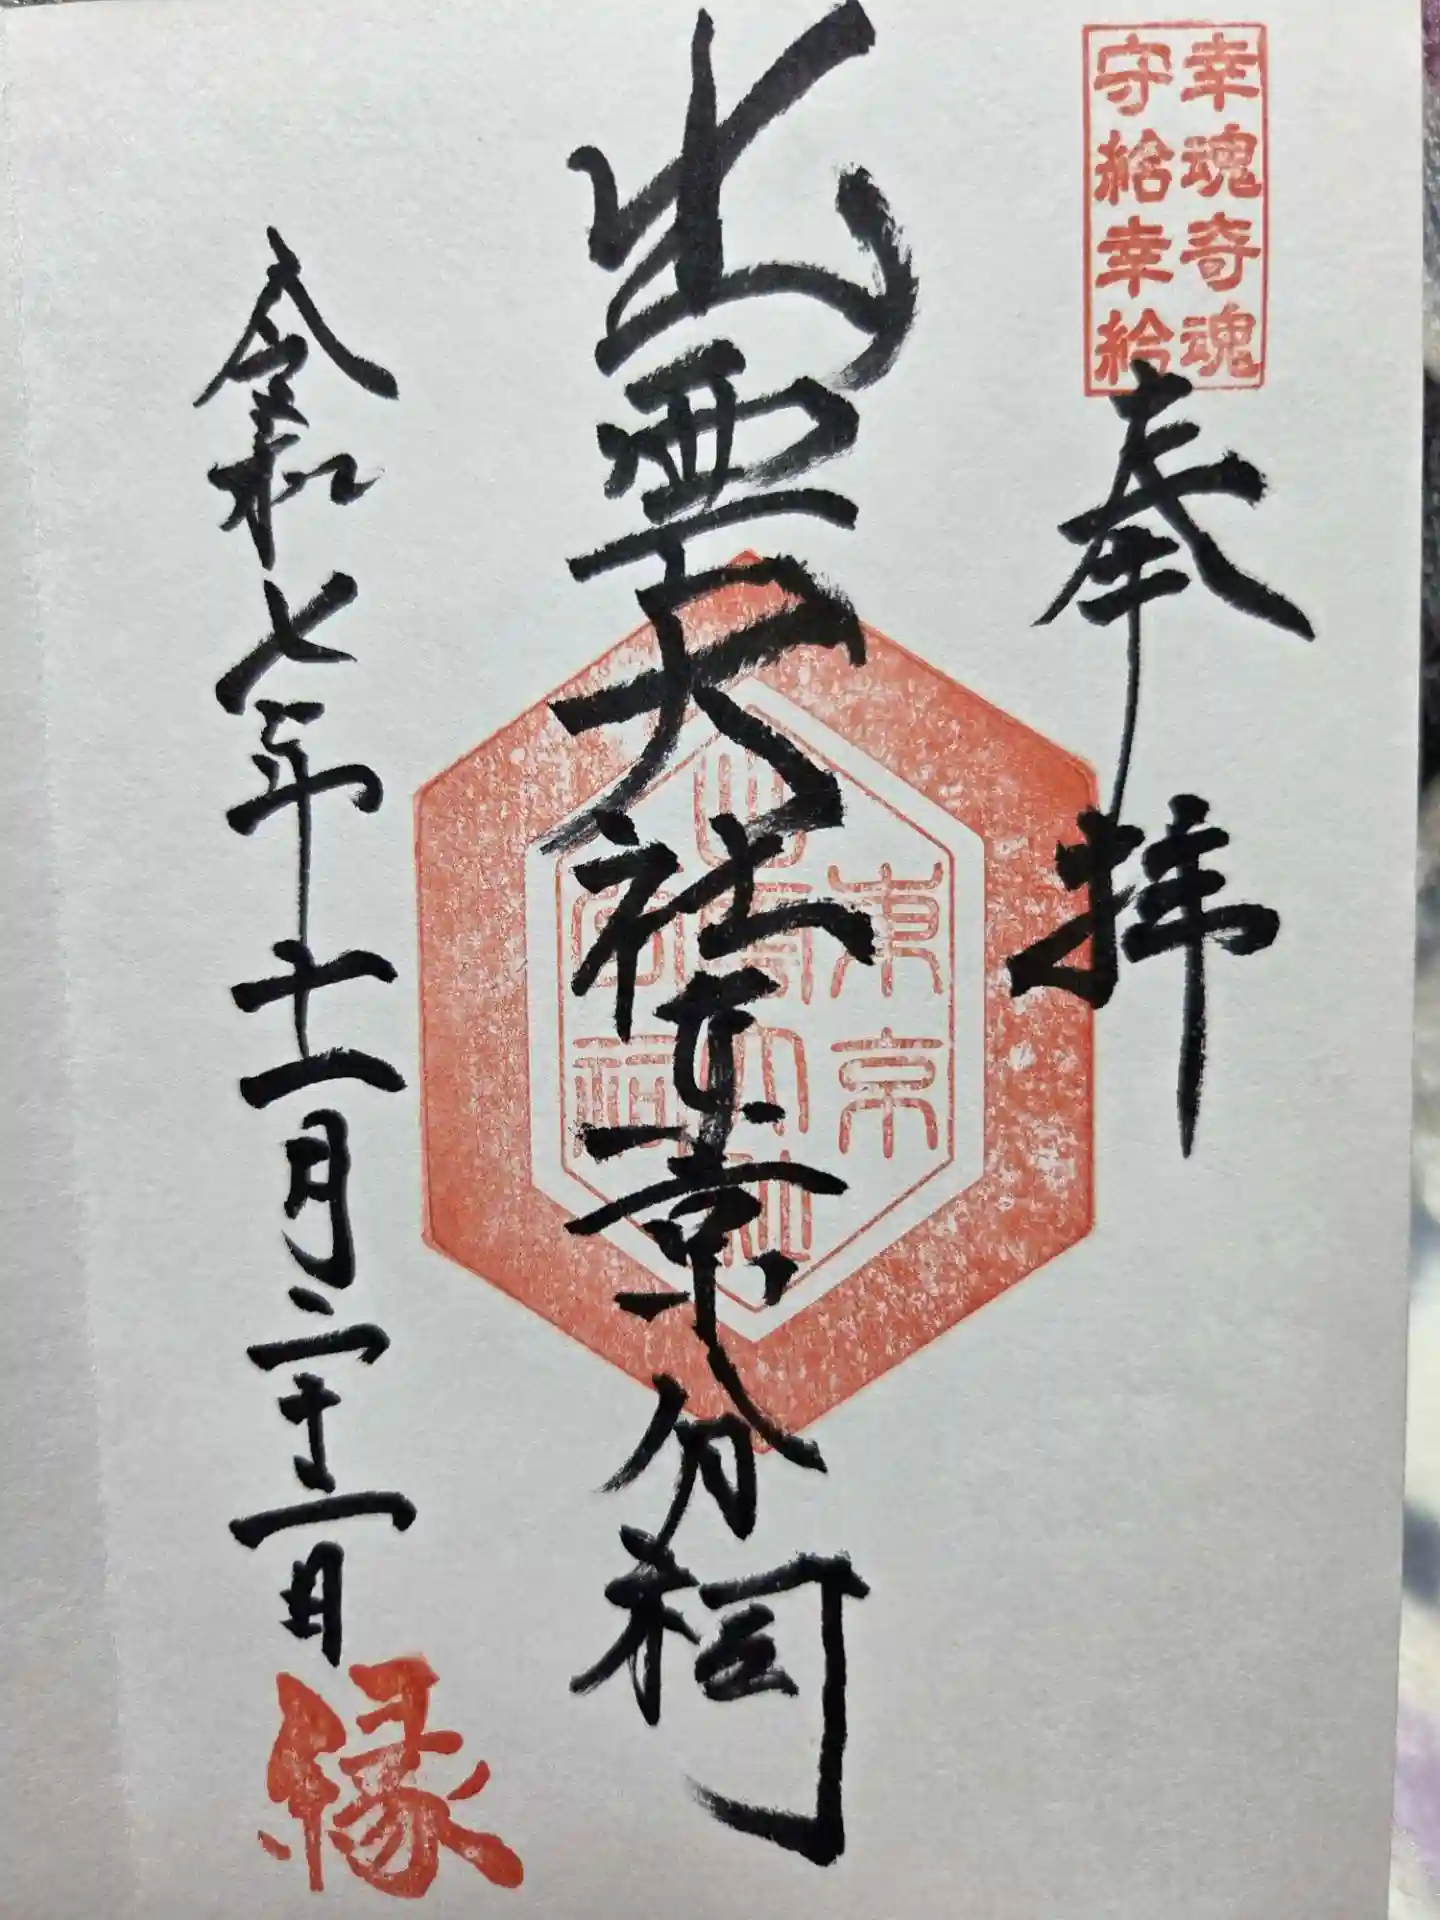 幸魂奇魂
守給幸給
奉拝
出雲大社東京分祠
東京
出雲大社
分祠
令和七年十一月二十二日
縁